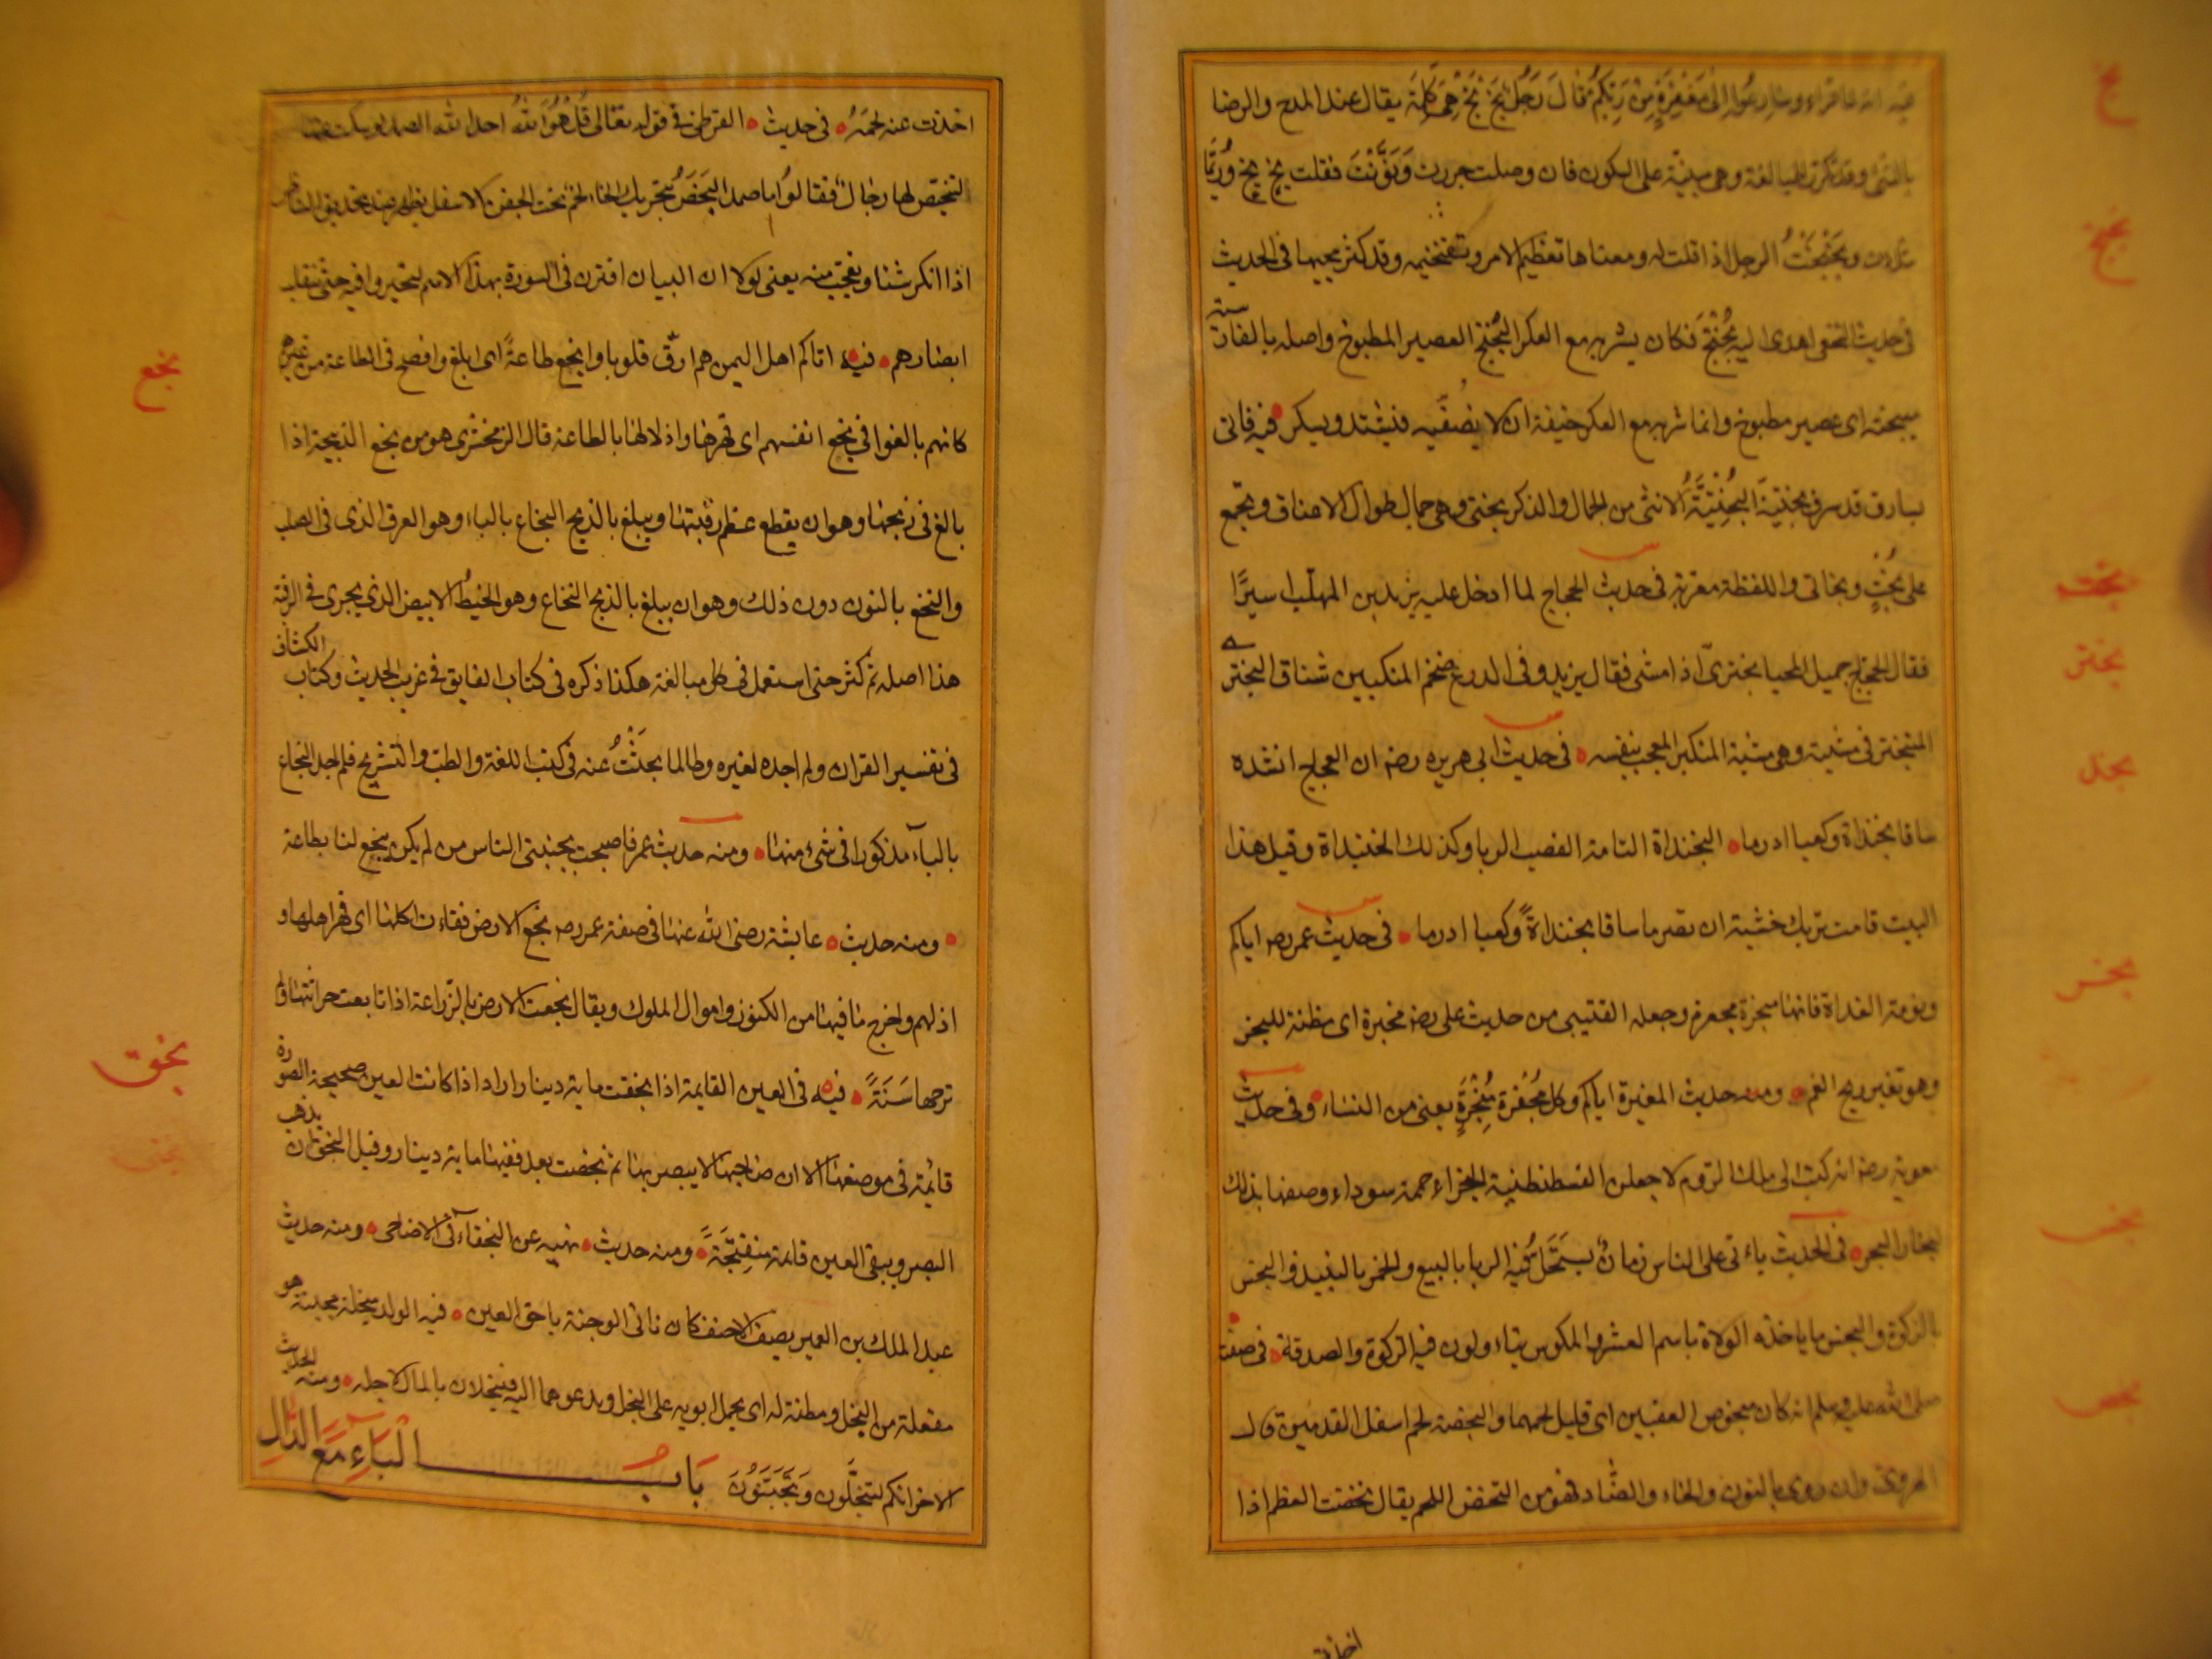 فيه انه لما قراء وسارعوا الى مَغْفِرَةٍ مِنْ رَبِّكُمْ قالَ رَجُلٌ بَخْ بَخْ هِىَ كَلِمَةٌ يقال عند المدح والرضا
بالشئ وقد تكرر للمبالغة وهى مبنية على السكون فان وصلت جررت وَنَوَّنْتَ فقلت بخٍ بخٍ ورُبَّما
شددت وبَخْبَخْتُ الرجل اذا قلت له ومعناها تعظيم الامر وتفخيمه وقد كثر مجيها فى الحديث
فى حديث النخعى اهدى اليه بُخْتُجٌ فكان يشربه مع العكر البُخْتُج العصير المطبوخ واصله بالفارسية
ميبخته اى عصير مطبوخ وانما شربه مع العكر خيفة ان لا يُصَفِّيه فيشتد ويسكر فيه فاتى
بسارق قد سرق بختية البُخْتِيَّةُ الانثى من الجمال والذكر بختى وهى جمال طوال الاعناق وتجمع
على بُخْتٍ وبخاتى واللفظة معربة فى حديث الحجاج لما ادخل عليه يزيد بن المهلّب اسيرًا
فقال الحجاج جميل المحيا بخترىّ اذا مشى فقال يزيد وفى الدرع ضخم المنكبين شناق البخترى
المتبختر فى مشيته وهى مشية المتكبر المعجب بنفسه فى حديث ابى هريره رضه ان العجاج انشده
ساقا بخنداة وكعبا ادرما البخنداة التامة القصب الريا وكذلك الخبنداة وقبل هذا
البيت قامت تريك خشية ان تصرما ساقا بخنداةً وكعبا ادرما فى حديث عمر رضه اياكم
ونومة الغداة فانها مبخرة مجعرة وجعله القتيبى من حديث على رضه مبخرة اى مظنة للبخر
وهو تغير ريح الفم ومنه حديث المغيرة اياكم وكل مُجْفِرة مُبْخِرَةٍ يعنى من النساء وفى حديث
معوية رضه انه كتب الى ملك الروم لاجعلن القسطنطنية البخراء حممة سوداء وصفها بذلك
لبخار البحر فى الحديث ياءتى على الناس زمانٌ يستَحَلُّ فيه الربا بالبيع والخمر بالنبيذ والبخس
بالزكوة والبخس ما ياخذه الولاة باسم العشر والمكوس يتاءولون فيه الزكوة والصدقة فى صفته
صلى الله عليه وسلم انه كان مبخوص العقبين اى قليل لحمهما والبخصة لحم اسفل القدمين قال
الهروى وان روى بالنون والحاء والضاد فهو من النحض اللحم يقال نحضت العظم اذا
اخذت
بخ
بخبخ
بخت
بختر
بخد
بخر
بخس
بخص
اخذت عنه لحمَهُ فى حديث القرظى فى قوله تعالى قُلْ هُوَ اللهُ احد الله الصمد لو سكت عنها
لتبخّص لها رجالٌ فقالوا ما صمد البَخَصُ بتحريك الخاء لحم تحت الجفن الاسفل يظهر عند تحديق الناظر
اذا انكر شئا وتعجب منه يعنى لولا ان البيان اقترن فى السورة بهذا الاسم لتحيروا فيه حتى تنقلب
ابصارهم فيه اتاكم اهل اليمن هم ارقّ قلوبا وابخع طاعةً اى ابلغ وافصح فى الطاعة من غيرهم
كانهم بالغوا فى بخع انفسهم اى قهرها واذلالها بالطاعة قال الزمخشرى هو من بخع الذبيحة اذا
بالغ فى ذبحها وهو ان يقطع عظم رقبتها ويبلغ بالذبح البخاع بالباء وهو العرق الذى فى الصلب
والنخع بالنون دون ذلك وهو ان يبلغ بالذبح النخاع وهو الخيط الابيض الذى يجرى فى الرقبة
هذا اصله ثم كثر حتى استعمل فى كل مبالغة هكذا ذكره فى كتاب الفايق فى غريب الحديث وكتاب الكشاف
فى تفسير القران ولم اجده لغيره وطالما بحثتُ عنه فى كتب اللغة والطب والتشريح فلم اجد البخاع
بالباء مذكورا فى شئ منها ومنه حديث عمر فاصبحت يجنبنى الناس من لم يكن يبخع لنا بطاعة
ومنه حديث عايشة رضى الله عنها فى صفة عمر رضه بخع الارض فقاءت اكلها اى قهر اهلها و
اذلهم واخرج ما فيها من الكنوز واموال الملوك ويقال بخعت الارض بالزراعة اذا تابعت حراثتها ولم
ترحها سَنَةً فيه فى العين القايمة اذا بخقت ماية دينار اراد اذا كانت العين صحيحة الصورة
قائمة فى موضعها الا ان صاحبها لا يبصر بها ثم بخصت بعد ففيها ماية دينار وقيل البخق ان يذهب
البصر ويبقى العين قائمة منفتحَةً ومنه حديث نهيه عن البخقاء فى الاضاحى ومنه حديث
عبد الملك بن العمير يصف الاحنف كان ناتئ الوجنة باخق العين فيه الولد مبخلة مجبنة هو
مفعلة من البخل ومظنة له اى يحمل ابويه على البخل ويدعوهما اليه فيبخلان بالمال لاجله ومنه الحديث
الاخر انكم لتبخّلون وتُجَبِّنُونَ بَابُ الْبَاءِ مَعَ الدَّالِ
بخع
بخق
بخل